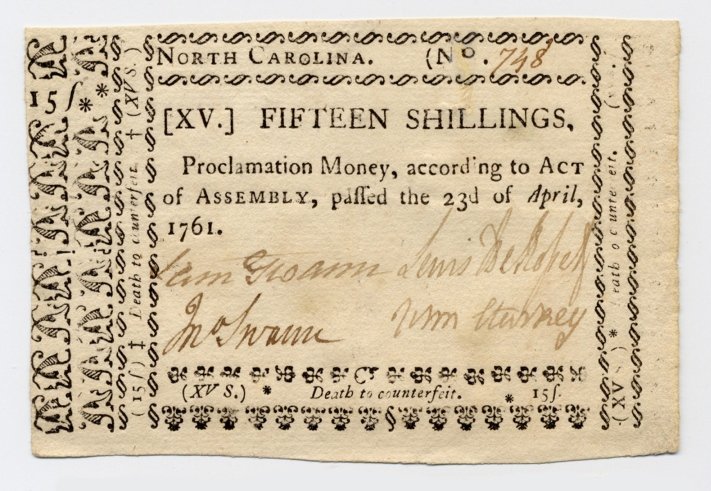 NORTH CAROLINA. (No. 748
15ſ**
[XV.] FIFTEEN SHILLINGS,
Proclamation Money, according to ACT
of ASSEMBLY, paſſed the 23d of April,
1761.
Sam Swann Lewis DeRosset
Jno Swann
(XV S.) * Death to counterfeit. * 15ſ.
(15ſ) ‡ Death to counterfeit. † (XV S.)
(XV ) * Death o counte eit.